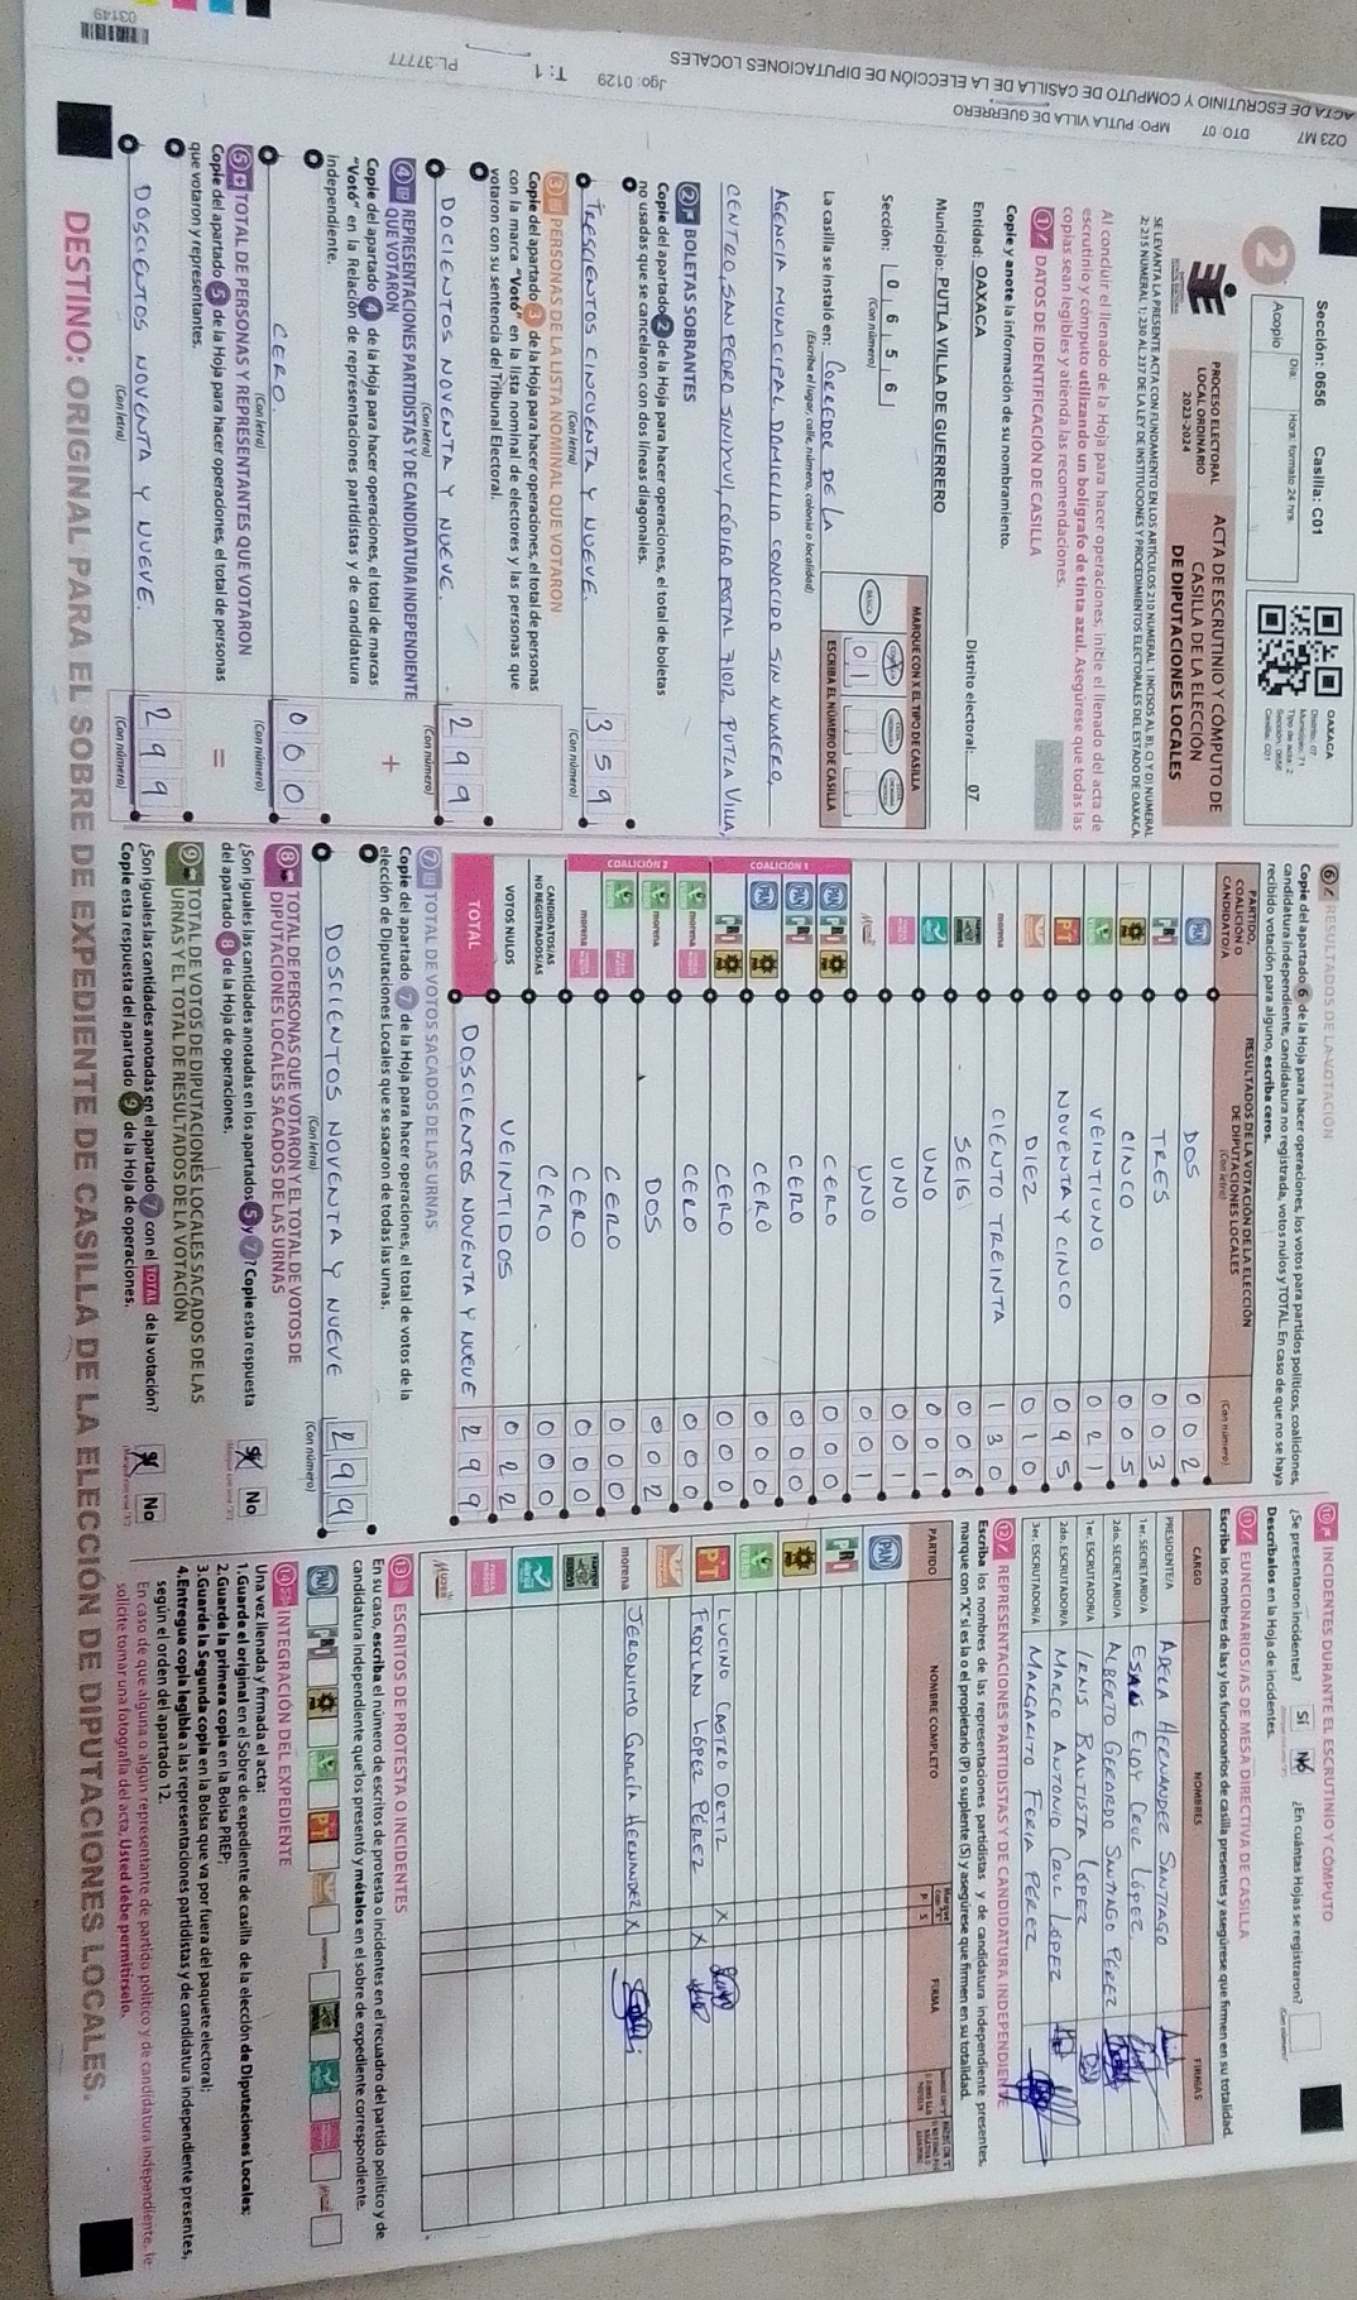 Sección: 0656 Casilla: C01
Día: Hora: formato 24 hrs.
2
Acopio
OAXACA
Distrito: 07
Municipio: 71
Tipo de acta: 2
Sección: 0656
Casilla: C01
PROCESO ELECTORAL
LOCAL ORDINARIO
2023-2024
ACTA DE ESCRUTINIO Y CÓMPUTO DE
CASILLA DE LA ELECCIÓN
DE DIPUTACIONES LOCALES
SE LEVANTA LA PRESENTE ACTA CON FUNDAMENTO EN LOS ARTÍCULOS 210 NUMERAL 1 INCISOS A), B), C) Y D) NUMERAL
2; 215 NUMERAL 1; 230 AL 237 DE LA LEY DE INSTITUCIONES Y PROCEDIMIENTOS ELECTORALES DEL ESTADO DE OAXACA.
Al concluir el llenado de la Hoja para hacer operaciones, inicie el llenado del acta de
escrutinio y cómputo utilizando un bolígrafo de tinta azul. Asegúrese que todas las
copias sean legibles y atienda las recomendaciones.
1 DATOS DE IDENTIFICACIÓN DE CASILLA
Copie y anote la información de su nombramiento.
Entidad: OAXACA Distrito electoral: 07
Municipio: PUTLA VILLA DE GUERRERO
MARQUE CON X EL TIPO DE CASILLA
Sección: 0 6 5 6
(Con número)
BÁSICA
ESCRIBA EL NÚMERO DE CASILLA
0 1
La casilla se instaló en: CORREDOR DE LA
(Escriba el lugar, calle, número, colonia o localidad)
AGENCIA MUNICIPAL DOMICILIO CONOCIDO SIN NUMERO,
CENTRO, SAN PEDRO SINIYUVI, CÓDIGO POSTAL 71012 PUTLA VILLA,
2 BOLETAS SOBRANTES
Copie del apartado 2 de la Hoja para hacer operaciones, el total de boletas
no usadas que se cancelaron con dos líneas diagonales.
TRESCIENTOS CINCUENTA Y NUEVE. 3 5 9
(Con letra) (Con número)
3 PERSONAS DE LA LISTA NOMINAL QUE VOTARON
Copie del apartado 3 de la Hoja para hacer operaciones, el total de personas
con la marca "Votó" en la lista nominal de electores y las personas que
votaron con su sentencia del Tribunal Electoral.
DOCIENTOS NOVENTA Y NUEVE. 2 9 9
(Con letra) (Con número)
4 REPRESENTACIONES PARTIDISTAS Y DE CANDIDATURA INDEPENDIENTE
QUE VOTARON
+
Copie del apartado 4 de la Hoja para hacer operaciones, el total de marcas
"Votó" en la Relación de representaciones partidistas y de candidatura
independiente.
CERO. 0 0 0
(Con letra) (Con número)
5 TOTAL DE PERSONAS Y REPRESENTANTES QUE VOTARON
Copie del apartado 5 de la Hoja para hacer operaciones, el total de personas
que votaron y representantes.
=
DOSCIENTOS NOVENTA Y NUEVE. 2 9 9
(Con letra) (Con número)
6 RESULTADOS DE LA VOTACIÓN
Copie del apartado 6 de la Hoja para hacer operaciones, los votos para partidos políticos, coaliciones,
candidatura independiente, candidatura no registrada, votos nulos y TOTAL. En caso de que no se haya
recibido votación para alguno, escriba ceros.
PARTIDO,
COALICIÓN O
CANDIDATO/A
RESULTADOS DE LA VOTACIÓN DE LA ELECCIÓN
DE DIPUTACIONES LOCALES
(Con letra) (Con número)
PAN DOS 0 0 2
PRI TRES 0 0 3
PRD CINCO 0 0 5
VERDE VEINTIUNO 0 2 1
PT NOVENTA Y CINCO 0 9 5
DIEZ 0 1 0
morena CIENTO TREINTA 1 3 0
SEIS 0 0 6
UNO 0 0 1
UNO 0 0 1
Mujer UNO 0 0 1
COALICIÓN 1
PAN PRI PRD CERO 0 0 0
PAN PRI CERO 0 0 0
PAN PRD CERO 0 0 0
PRI PRD CERO 0 0 0
COALICIÓN 2
VERDE morena CERO 0 0 0
VERDE morena DOS 0 0 2
VERDE CERO 0 0 0
morena CERO 0 0 0
CANDIDATOS/AS
NO REGISTRADOS/AS CERO 0 0 0
VOTOS NULOS VEINTIDOS 0 2 2
TOTAL DOSCIENTOS NOVENTA Y NUEVE 2 9 9
7 TOTAL DE VOTOS SACADOS DE LAS URNAS
Copie del apartado 7 de la Hoja para hacer operaciones, el total de votos de la
elección de Diputaciones Locales que se sacaron de todas las urnas.
DOSCIENTOS NOVENTA Y NUEVE 2 9 9
(Con letra) (Con número)
8 TOTAL DE PERSONAS QUE VOTARON Y EL TOTAL DE VOTOS DE
DIPUTACIONES LOCALES SACADOS DE LAS URNAS
¿Son iguales las cantidades anotadas en los apartados 5 y 7? Copie esta respuesta
del apartado 8 de la Hoja de operaciones.
Sí No
9 TOTAL DE VOTOS DE DIPUTACIONES LOCALES SACADOS DE LAS
URNAS Y EL TOTAL DE RESULTADOS DE LA VOTACIÓN
¿Son iguales las cantidades anotadas en el apartado 7 con el TOTAL de la votación?
Copie esta respuesta del apartado 9 de la Hoja de operaciones.
Sí No
10 INCIDENTES DURANTE EL ESCRUTINIO Y CÓMPUTO
¿Se presentaron incidentes? Sí No ¿En cuántas Hojas se registraron?
(Con número)
Descríbalos en la Hoja de incidentes.
11 FUNCIONARIOS/AS DE MESA DIRECTIVA DE CASILLA
Escriba los nombres de las y los funcionarios de casilla presentes y asegúrese que firmen en su totalidad.
CARGO NOMBRES FIRMAS
PRESIDENTE/A ADELA HERNANDEZ SANTIAGO
1er. SECRETARIO/A ESAÚ ELOY CRUZ LÓPEZ.
2do. SECRETARIO/A ALBERTO GERARDO SANTIAGO PEREZ
1er. ESCRUTADOR/A IRAIS BAUTISTA LÓPEZ
2do. ESCRUTADOR/A MARCO ANTONIO CRUZ LÓPEZ
3er. ESCRUTADOR/A MARGARITO FERIA PÉREZ
12 REPRESENTACIONES PARTIDISTAS Y DE CANDIDATURA INDEPENDIENTE
Escriba los nombres de las representaciones partidistas y de candidatura independiente presentes,
marque con "X" si es la o el propietario (P) o suplente (S) y asegúrese que firmen en su totalidad.
PARTIDO NOMBRE COMPLETO P S FIRMA
PAN
PRI
PRD
VERDE
PT LUCINO CASTRO ORTIZ X
FROYLAN LÓPEZ PÉREZ X
morena JERONIMO GARCÍA HERNANDEZ X
Mujer
13 ESCRITOS DE PROTESTA O INCIDENTES
En su caso, escriba el número de escritos de protesta o incidentes en el recuadro del partido político y de
candidatura independiente que los presentó y métalos en el sobre de expediente correspondiente.
PAN PRI PRD VERDE PT morena
14 INTEGRACIÓN DEL EXPEDIENTE
Una vez llenada y firmada el acta:
1.Guarde el original en el Sobre de expediente de casilla de la elección de Diputaciones Locales;
2.Guarde la primera copia en la Bolsa PREP;
3.Guarde la Segunda copia en la Bolsa que va por fuera del paquete electoral;
4.Entregue copia legible a las representaciones partidistas y de candidatura independiente presentes,
según el orden del apartado 12.
En caso de que alguna o algún representante de partido político y de candidatura independiente, le
solicite tomar una fotografía del acta, Usted debe permitírselo.
DESTINO: ORIGINAL PARA EL SOBRE DE EXPEDIENTE DE CASILLA DE LA ELECCIÓN DE DIPUTACIONES LOCALES.
023 M7 DTO: 07 MPO: PUTLA VILLA DE GUERRERO
ACTA DE ESCRUTINIO Y CÓMPUTO DE CASILLA DE LA ELECCIÓN DE DIPUTACIONES LOCALES
Jgo: 0129 T: 1 PL:37777
03149